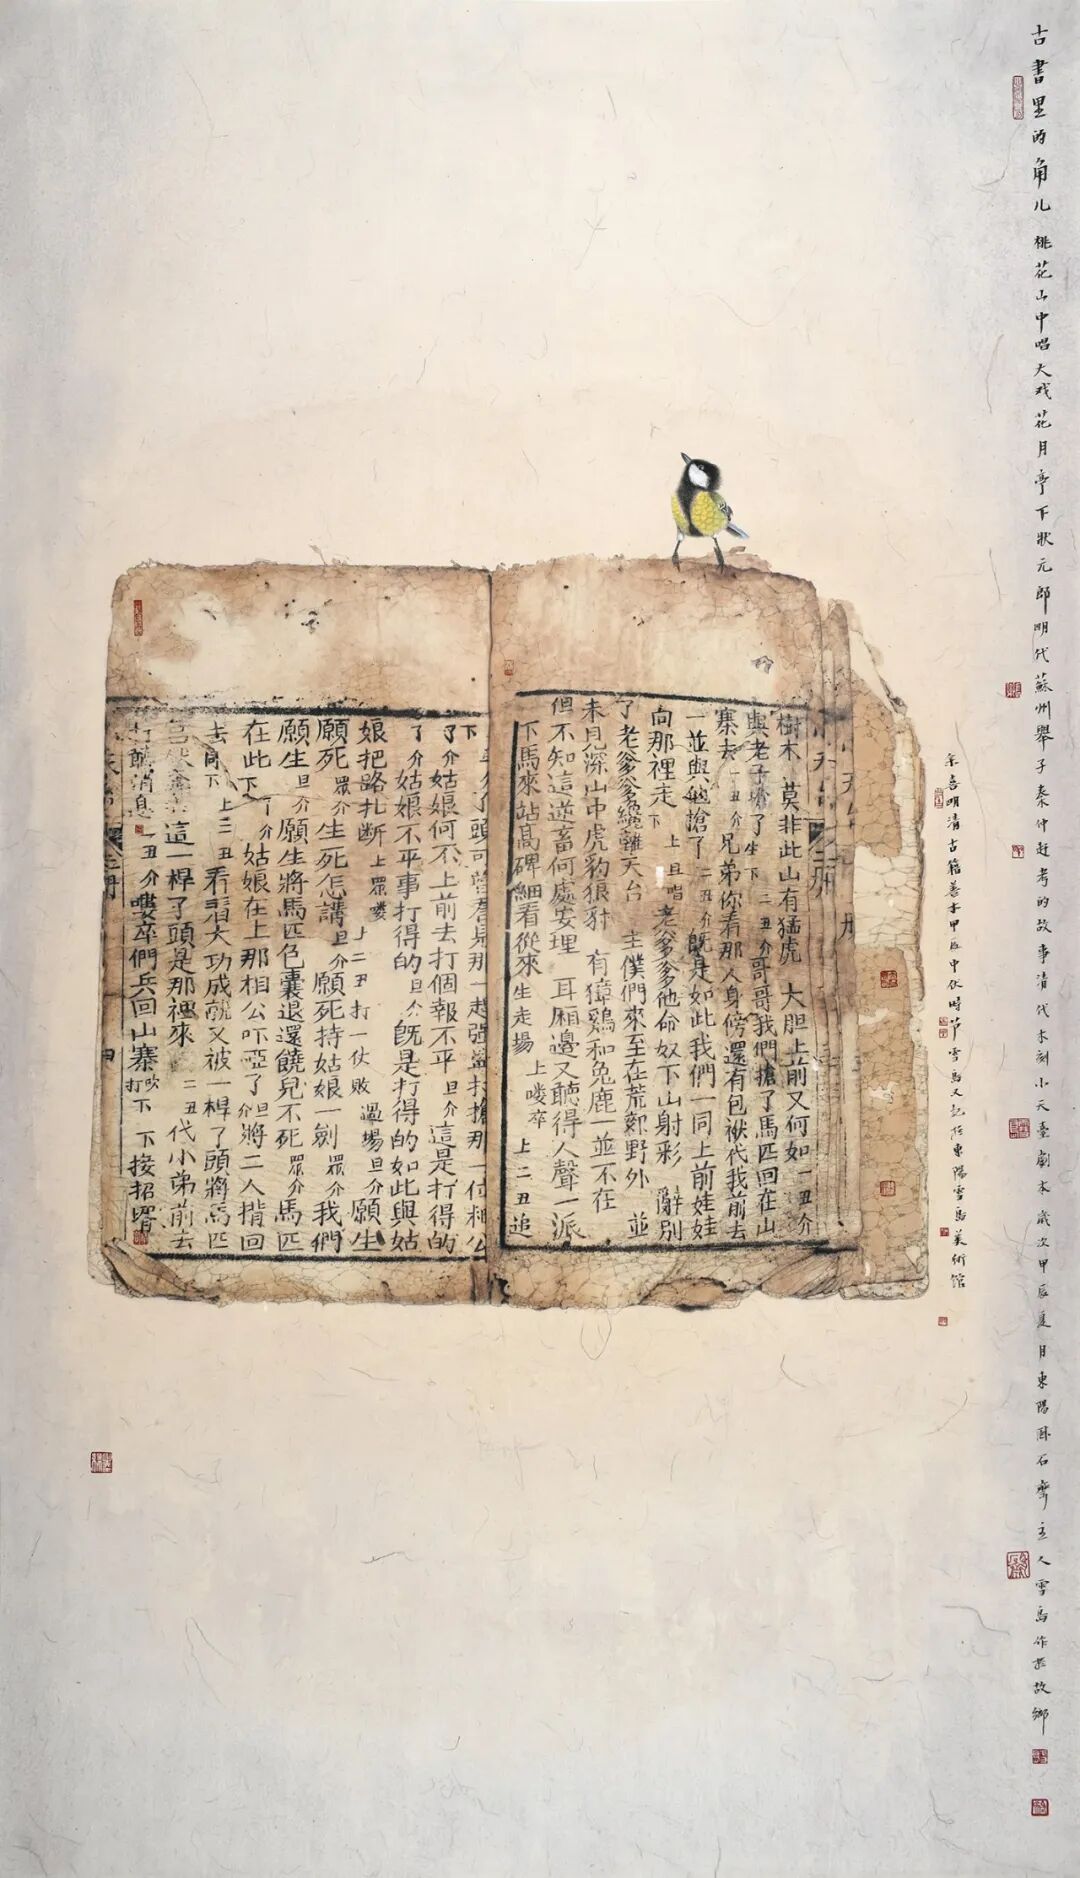 古書里的角儿 桃花山中唱大戏花月亭下狀元郎明代蘇州舉子秦仲赶考的故事清代木刻小天臺劇本 歲次甲辰夏月東陽 石齊主人雪馬作於故鄉
余喜明清古籍善本甲辰中伏時节雪馬又記於東陽雪馬美術馆
樹木 莫非此山有猛虎 大胆上前又何如 一丑介
與老子搶了 生下 二丑介 哥哥我們搶了馬匹回在山
寨去 一丑介 兄弟你看那人身傍還有包袱代我前去
一並與他搶了 二丑介 既是如此我們一同上前娃娃
向那裡走 下 上旦唱 老爹爹他命奴下山射彩 辭別
了老爹爹纔離天台 主僕們來至在荒郊野外 並
未見深山中虎豹狼豺 有獐鷄和兔鹿一並不在
但不知這逆畜何處安理 耳厢邊又聽得人聲一派
下馬來站高碑細看從來 生走場 上嘍卒 上二丑追
下 旦介 了頭可曾看見那一起強盜打搶那一位相公
了介 姑娘何不上前去打個報不平 旦介 這是打得的
了介 姑娘不平事打得的 旦介 既是打得的如此與姑
娘把路扎断 上眾嘍 上二丑打一仗敗 過場 旦介 願生
願死 眾介 生死怎講 旦介 願死持姑娘一劍 眾介 我們
願生 旦介 願生將馬匹色囊退還饒兒不死 眾介 馬匹
在此 下 了介 姑娘在上那相公吓啞了 旦介 將二人揹回
去 同下 上二丑 看看大功成就又被一桿了頭將馬匹
這一桿了頭是那裡來 二丑 代小弟前去
打聽消息 一丑介 嘍卒們兵回山寨 吹打下 下接招壻